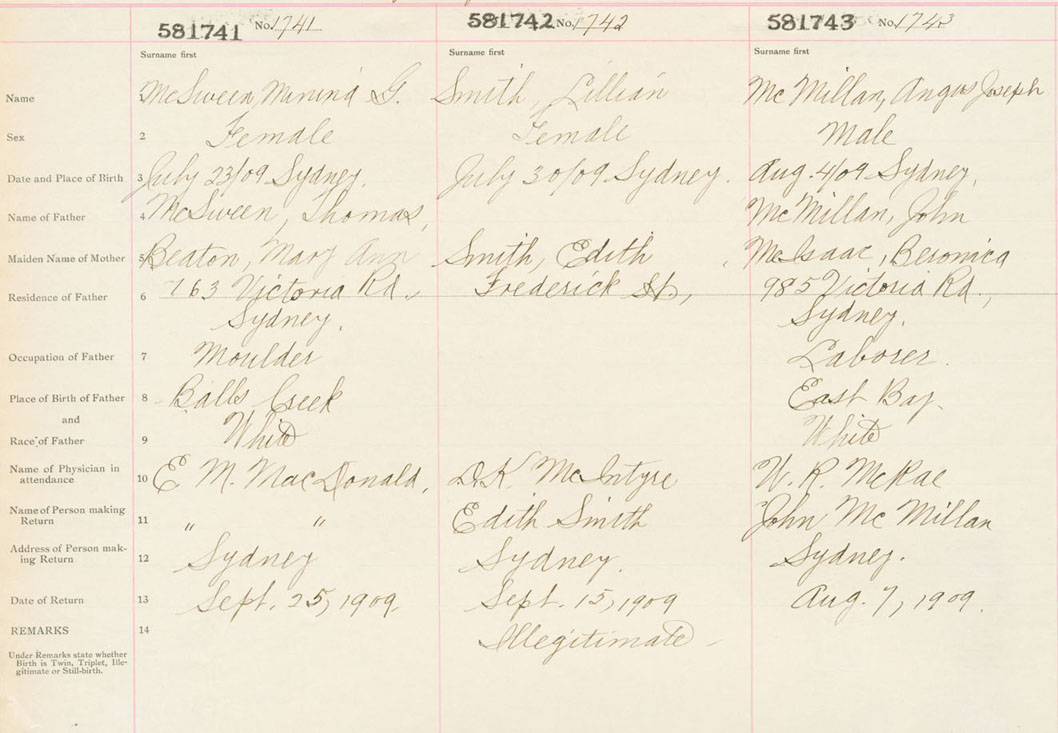 581741 No. 1741 581742 No. 1742 581743 No. 1743
Surname first Surname first Surname first
Name 1 McSween, G. Smith, Lillian McMillan, Angus Joseph
Sex 2 Female Female Male
Date and Place of Birth 3 July 23/09 Sydney. July 30/09 Sydney. Aug. 4/09 Sydney.
Name of Father 4 McSween, Thomas, McMillan, John
Maiden Name of Mother 5 Beaton, Mary Ann Smith, Edith McIsaac, Beronica
Residence of Father 6 763 Victoria Rd., Frederick St., 985 Victoria Rd.,
Sydney. Sydney.
Occupation of Father 7 Moulder Laborer.
Place of Birth of Father 8 Balls Creek East Bay.
and
Race of Father 9 White White
Name of Physician in
attendance 10 E M. MacDonald, D.K. McIntyre W. R. McRae
Name of Person making
Return 11 " " Edith Smith John McMillan
Address of Person mak-
ing Return 12 Sydney Sydney. Sydney.
Date of Return 13 Sept. 25, 1909. Sept. 15, 1909 Aug. 7, 1909.
REMARKS 14 Illegitimate
Under Remarks state whether
Birth is Twin, Triplet, Ille-
gitimate or Still-birth.